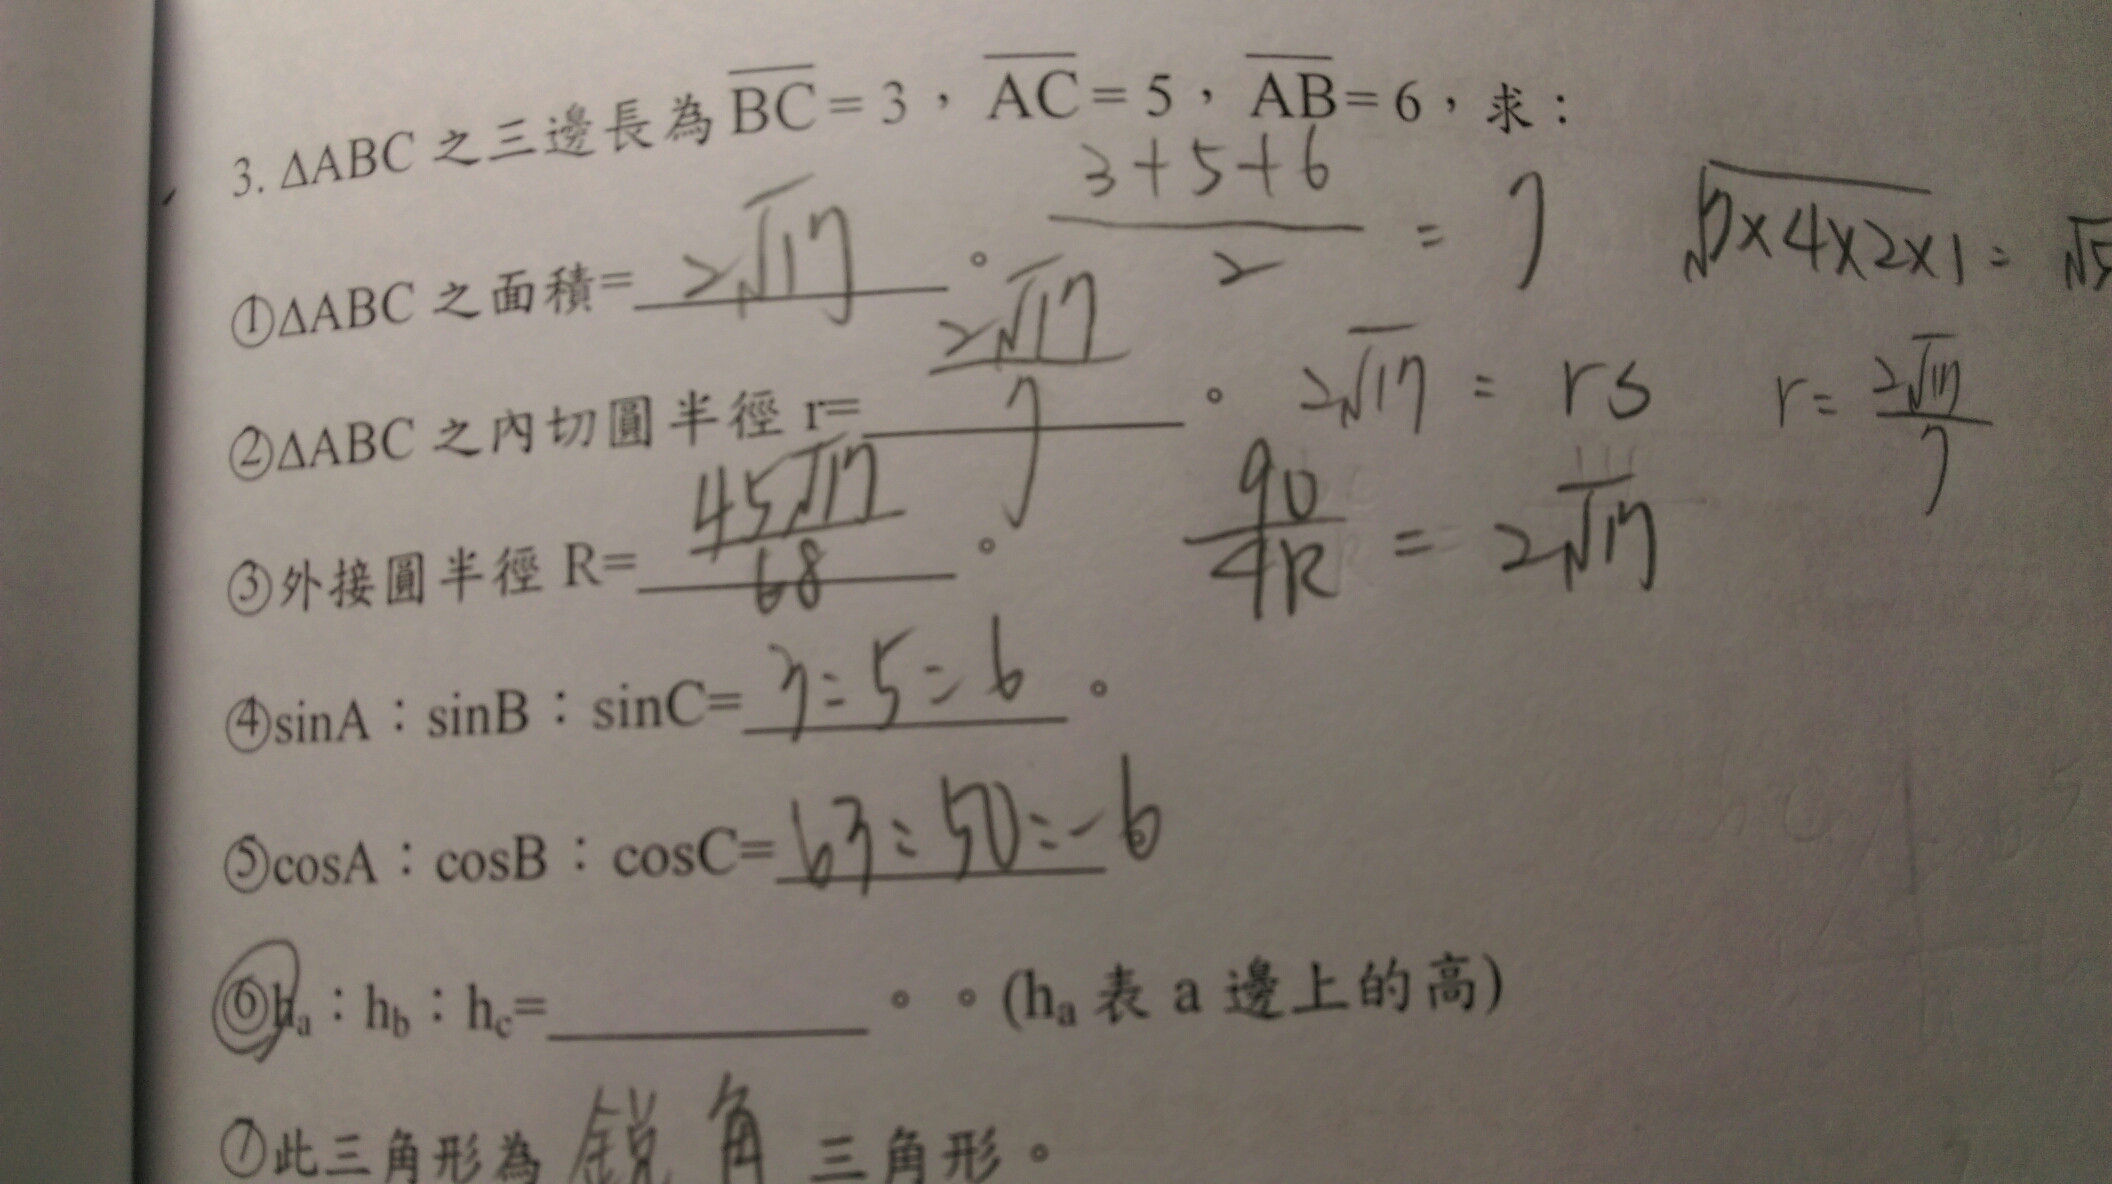 3. ΔABC 之三邊長為 BC = 3，AC = 5，AB = 6，求：
①ΔABC 之面積= 2√17 。 (3+5+6)/2 = 7 √7×4×2×1 =
②ΔABC 之內切圓半徑 r= 2√17/7 。 2√17 = rs r= 2√17/7
③外接圓半徑 R= 45√17/68 。 90/4R = 2√17
④sinA：sinB：sinC= 3:5:6 。
⑤cosA：cosB：cosC= 63:50:-6
⑥ha：hb：hc= 。 。(ha 表 a 邊上的高)
⑦此三角形為 銳角 三角形。